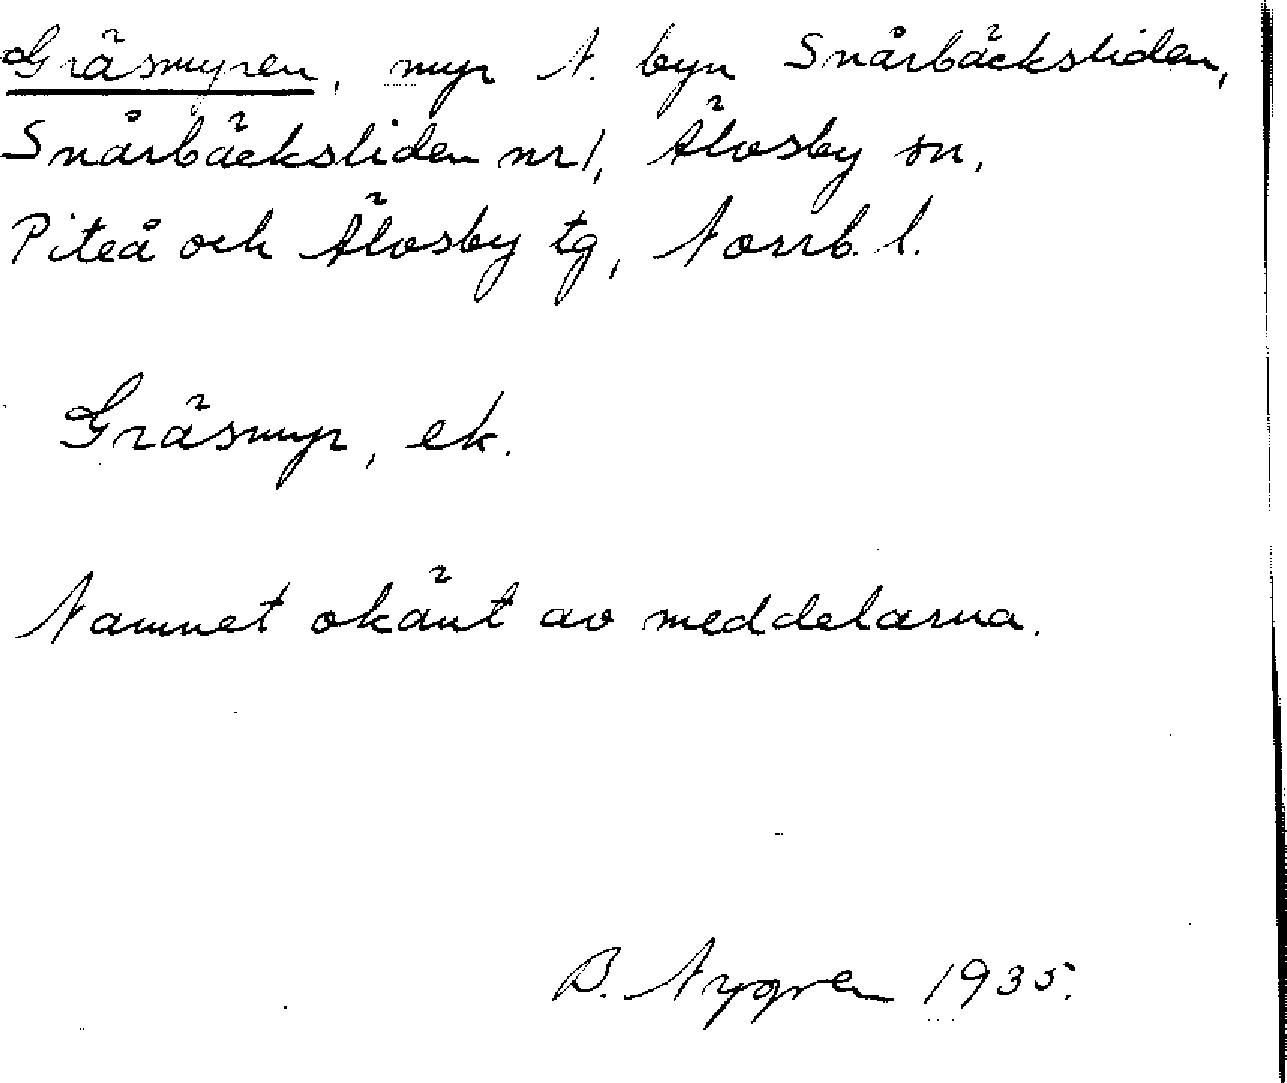 Gräsmyren, myr N. byn Snårbäcksliden,
Snårbäcksliden nr 1, Älvsby sn,
Piteå och Älvsby tg, Norrb. l.
Gräsmyr, ek.
Namnet okänt av meddelarna.
B. Nygren 1935.